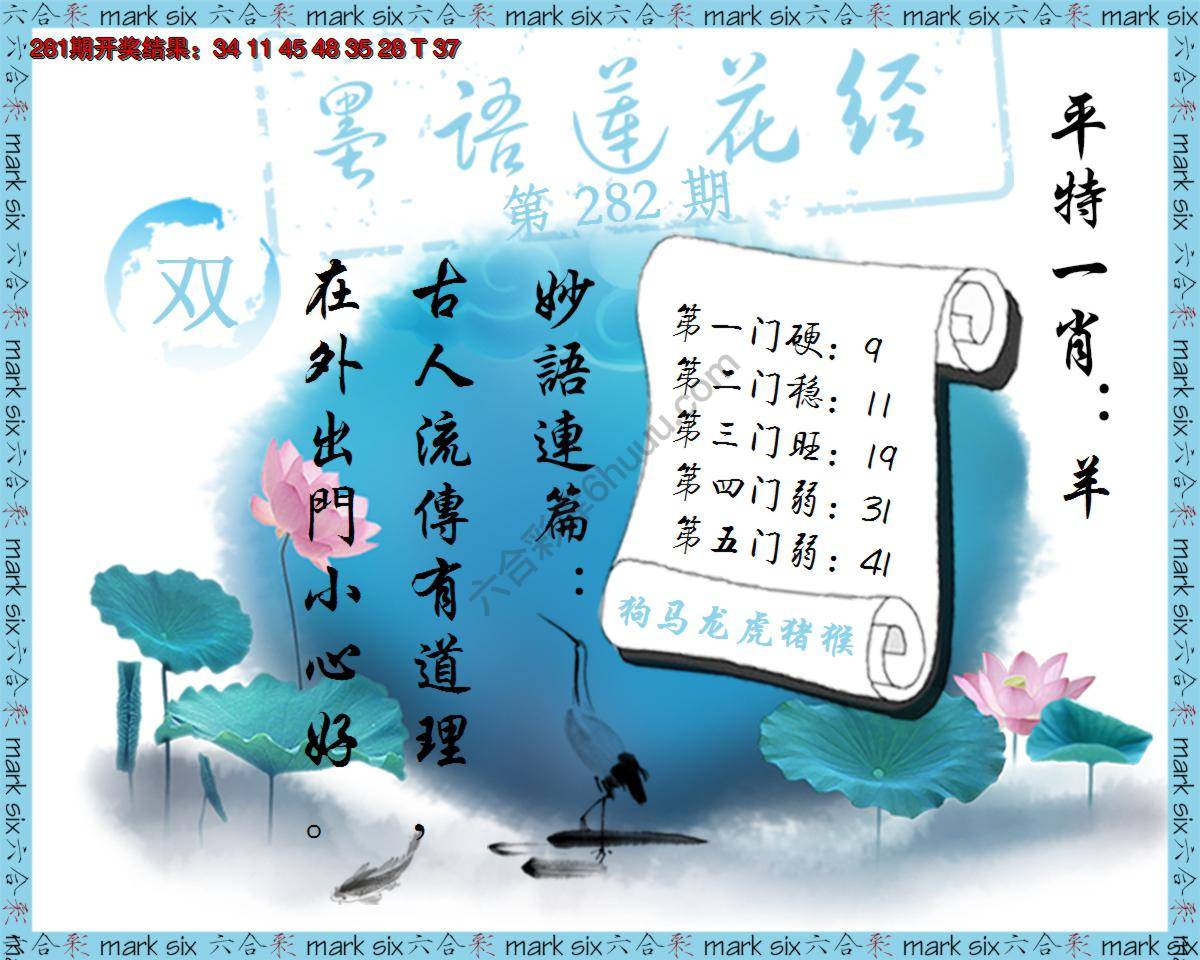 六合彩 mark six 六合彩 mark six 六合彩 mark six 六合彩 mark six 六合彩 mark six 六合彩 mark six
281期开奖结果：34 11 45 48 35 28 T 37
墨語莲花经
第 282 期
双
平特一肖：羊
妙語連篇：
古人流傳有道理，
在外出門小心好。
第一门硬：9
第二门稳：11
第三门旺：19
第四门弱：31
第五门弱：41
狗马龙虎猪猴
六合彩 mark six 六合彩 mark six 六合彩 mark six 六合彩 mark six 六合彩 mark six 六合彩 mark six